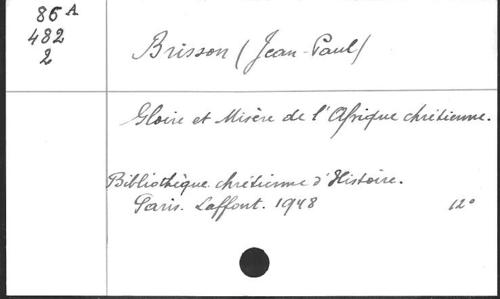 86 A
482
2
Brisson (Jean-Paul)
Gloire et Misère de l'Afrique chrétienne.
Bibliothèque chrétienne d'Histoire.
Paris. Laffont. 1948 12°